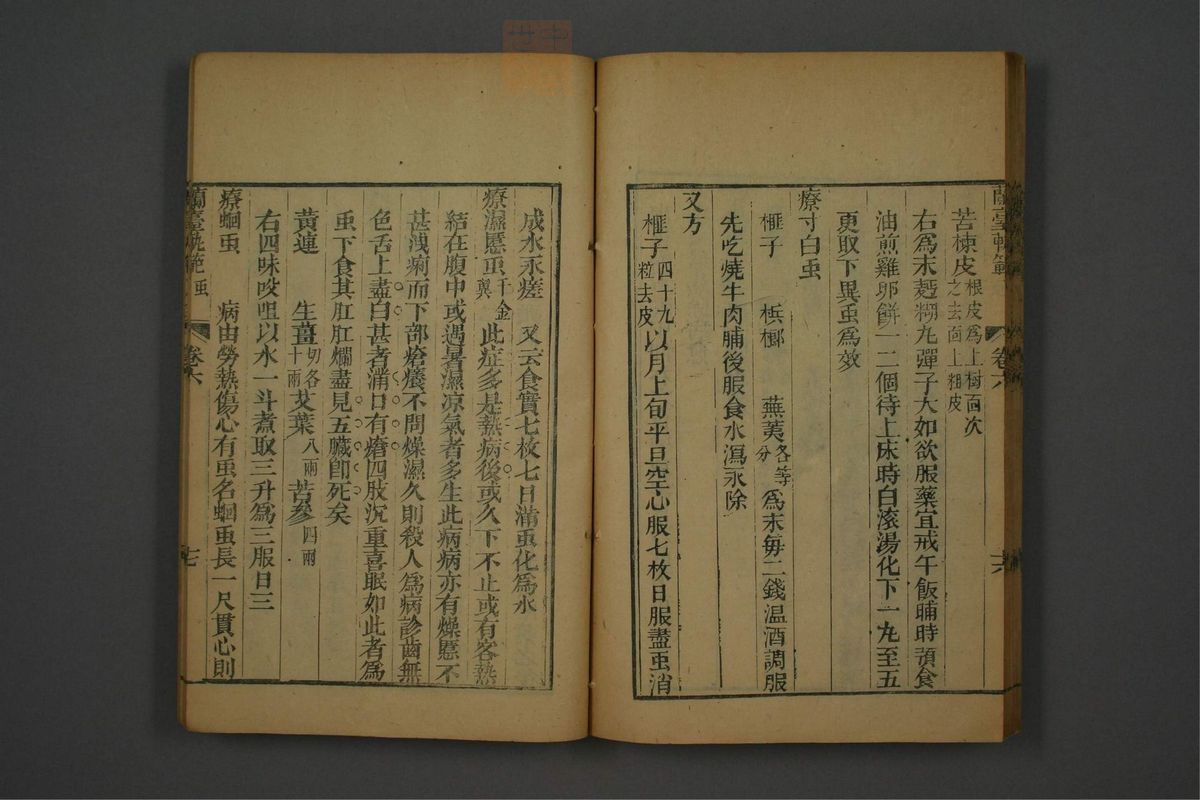 蘭臺軌範
卷六
六
苦楝皮根皮為上樹面次之去面上粗皮
右為末麵糊丸彈子大如欲服藥宜戒午飯晡時預食
油煎雞卵餅一二個待上床時白滾湯化下一丸至五
更取下異虫為效
療寸白虫
榧子 梹榔 蕪荑各等分為末每二錢温酒調服
先吃燒牛肉脯後服食水瀉永除
又方
榧子四十九粒去皮以月上旬平旦空心服七枚日服盡虫消
成水永瘥 又云食實七枚七日滿虫化為水
療濕䘌虫千金翼此症多是熱病後或久下不止或有客熱
結在腹中或遇暑濕凉氣者多生此病病亦有燥䘌不
甚洩痢而下部瘡癢不問燥濕久則殺人為病診齒無
色舌上盡白甚者滿口有瘡四肢沉重喜眠如此者為
虫下食其肛肛爛盡見五臟卽死矣
黃連 生薑切各十兩艾葉八兩苦參四兩
右四味㕮咀以水一斗煮取三升為三服日三
療蛔虫 病由勞熱傷心有虫名蛔虫長一尺貫心則
蘭臺軌範 虫
卷六
七